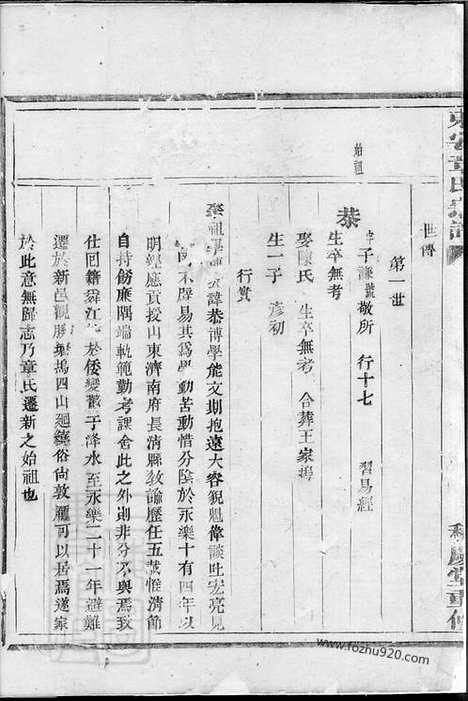 世傳
第一世
始祖
恭 字子謙號敬所 行十七 習易經
生卒無考
娶陳氏 生卒無考 合葬王家塢
生一子 彥初
行實
諱恭博學能文期抱遠大容貌魁偉談吐宏亮見
易其爲學動苦動惜分陰於永樂十有四年以
明經應貢授山東濟南府長清縣敎諭歷任五載惟清節
自持飭廉隅端軌範勤考課舍此之外則非分不與焉致
仕回籍 江 於倭變 于 水至永樂二十一年避難
遷於新邑觀勝 塢四山廻繞俗尙敦龐可以居焉遂家
於此意無歸志乃章氏遷新之始祖也
章氏宗譜
慶堂重修
www.fozhu920.com